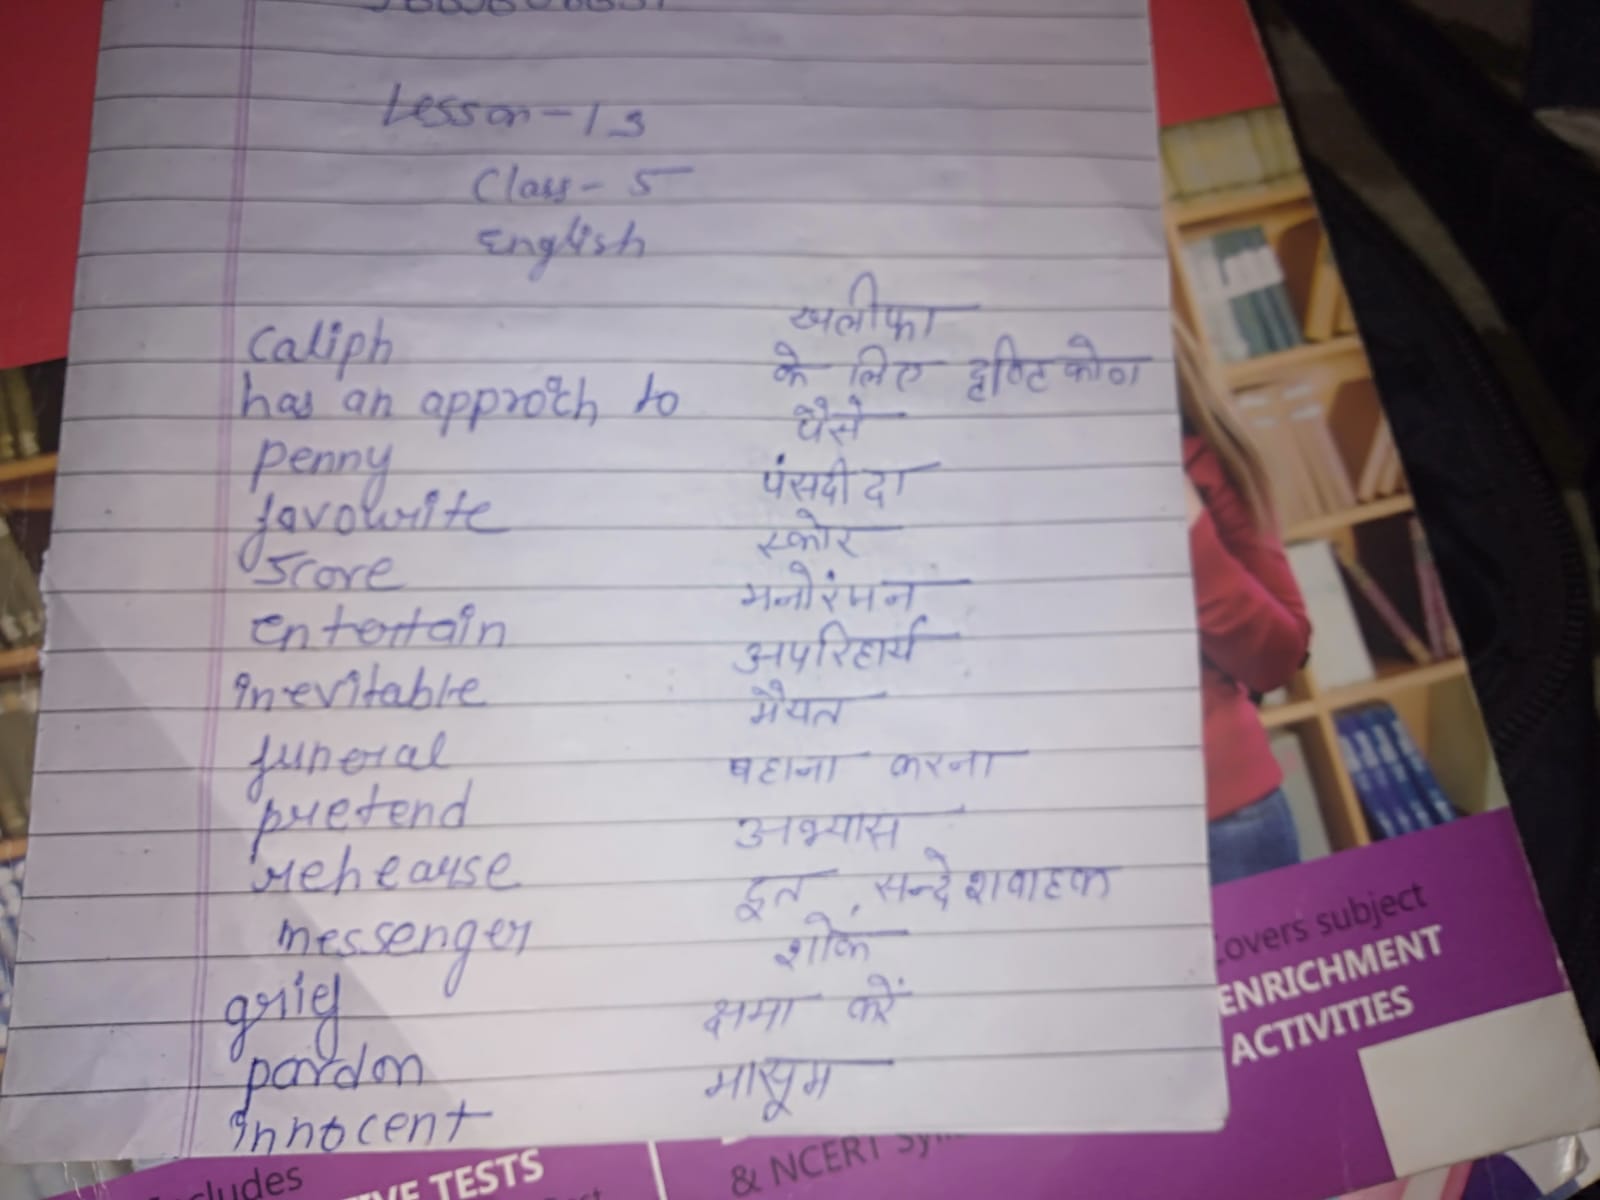 Lesson-13
Class-5
English
Caliph खलीफा
has an approch to के लिए दृष्टिकोण
penny पैसे
favowrite पंसदीदा
Score स्कोर
entertain मनोरंजन
inevitable अपरिहार्य
funeral मैयत
pretend बहाना करना
rehearse अभ्यास
messenger दूत, सन्देशवाहक
grief शोक
pardon क्षमा करें
innocent मासूम
Covers subject
ENRICHMENT
ACTIVITIES
& NCERT
TESTS